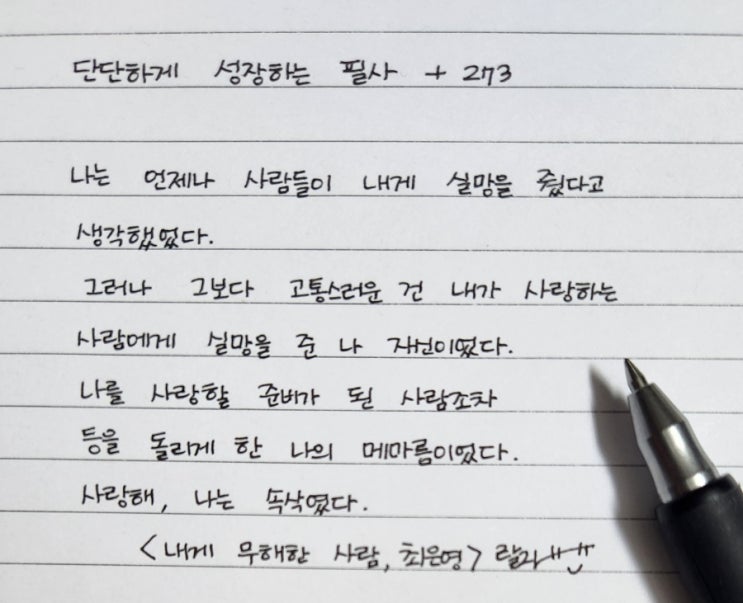 단단하게 성장하는 필사 + 273
나는 언제나 사람들이 내게 실망을 줬다고
생각했었다.
그러나 그보다 고통스러운 건 내가 사랑하는
사람에게 실망을 준 나 자신이었다.
나를 사랑할 준비가 된 사람조차
등을 돌리게 한 나의 메마름이었다.
사랑해, 나는 속삭였다.
<내게 무해한 사람, 최은영>